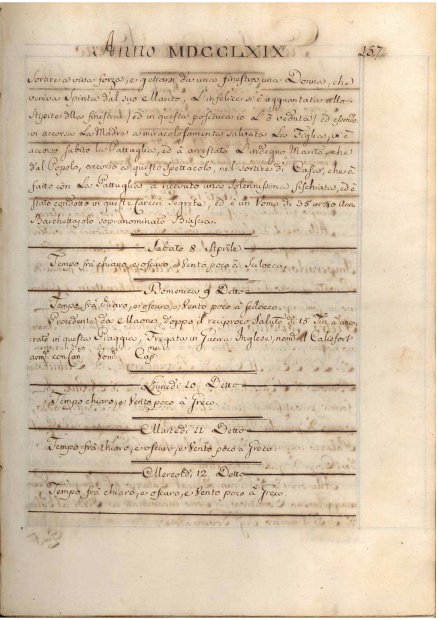 Anno MDCCLXIX 157
Sortire a viva forza, e gettarsi da una finestra una Donna, che
veniva spinta dal suo Marito, L'infelice si è agguantata allo
Stipite della finestra, ed in questa positura io L'ò veduta, ed essendo
vi accorsa La Madre a miracolosamente salvata La Figlia, vi è
accorso subito La Pattuglia, ed à arrestato L'indegno Marito, che
dal Popolo, accorso a questo Spettacolo, nel sortire di Casa, che à
fatto con La Pattuglia, à ricevuto una Solennissima fischiata, ed è
stato condotto in queste Carceri Segrete, ed è un Uomo di 35 in 40 Anni
Barchettajolo sopranominato Biascia.
Sabato 8 Aprile
Tempo frà chiaro, e oscuro, e Vento poco à Scilocco.
Domenica 9 Detto
Tempo frà chiaro, e oscuro, e Vento poco à Scilocco.
Procedente da Maone, doppo il reciproco Saluto di 15 Tiri, à anco
rato in questa Piaggia, Fregata in Guerra Inglese, nom.
arm. con Can. Uom. Cap.
Lunedì 10 Detto
Tempo chiaro, e Vento poco à Greco.
Martedì 11 Detto
Tempo frà chiaro, e oscuro, e Vento poco à Greco
Mercoldì 12 Detto
Tempo frà chiaro, e oscuro, e Vento poco à Greco